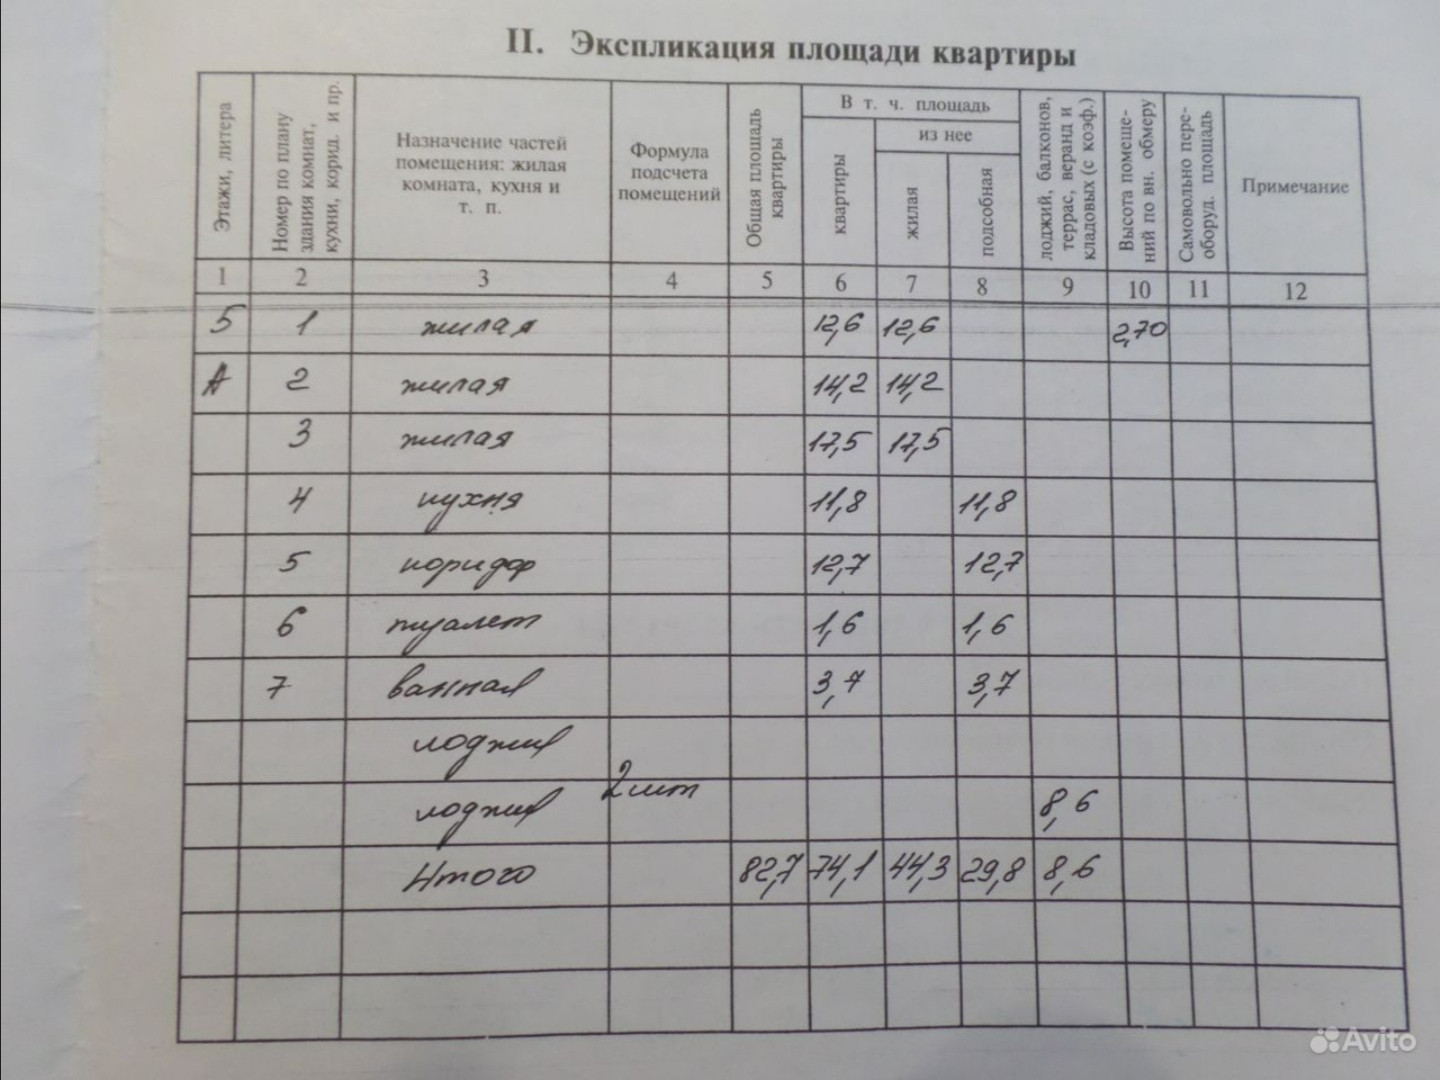 II. Экспликация площади квартиры
Этажи, литера
Номер по плану здания комнат, кухни, корид. и пр.
Назначение частей помещения: жилая комната, кухня и т. п.
Формула подсчета помещений
Общая площадь квартиры
В т. ч. площадь
квартиры
из нее
жилая
подсобная
лоджий, балконов, террас, веранд и кладовых (с коэф.)
Высота помещений по вн. обмеру
Самовольно переоборуд. площадь
Примечание
1 2 3 4 5 6 7 8 9 10 11 12
5 1 жилая 12,6 12,6 2,70
А 2 жилая 14,2 14,2
3 жилая 17,5 17,5
4 кухня 11,8 11,8
5 коридор 12,7 12,7
6 туалет 1,6 1,6
7 ванная 3,7 3,7
лоджия
лоджия 2 шт 8,6
Итого 82,7 74,1 44,3 29,8 8,6
Avito